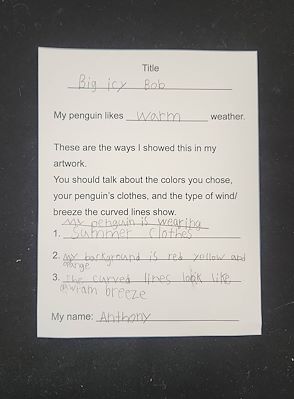 Title
Big icy Bob
My penguin likes warm weather.
These are the ways I showed this in my
artwork.
You should talk about the colors you chose,
your penguin's clothes, and the type of wind/
breeze the curved lines show.
My penguin is wearing
1. Summer Clothes
2. My background is red yellow and
orange
3. The curved lines look like
a wram breeze
My name: Anthony